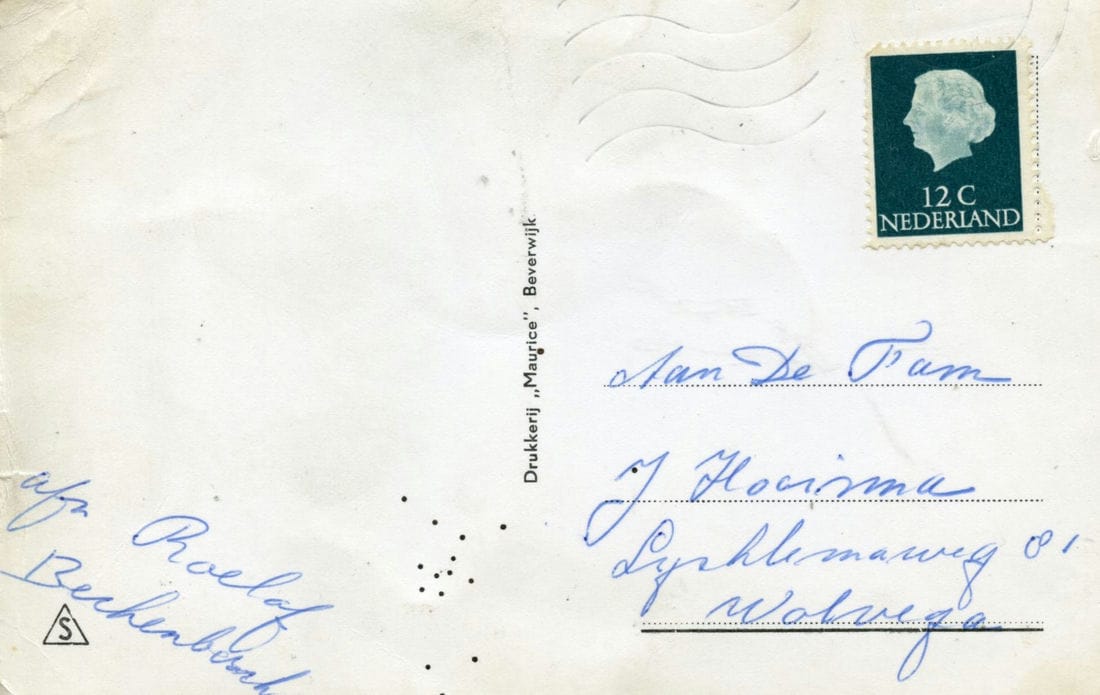 12 C
NEDERLAND
Drukkerij „Maurice”, Beverwijk
Aan De Fam
J Hooisma
81
Wolvega
afz
Roelof
S